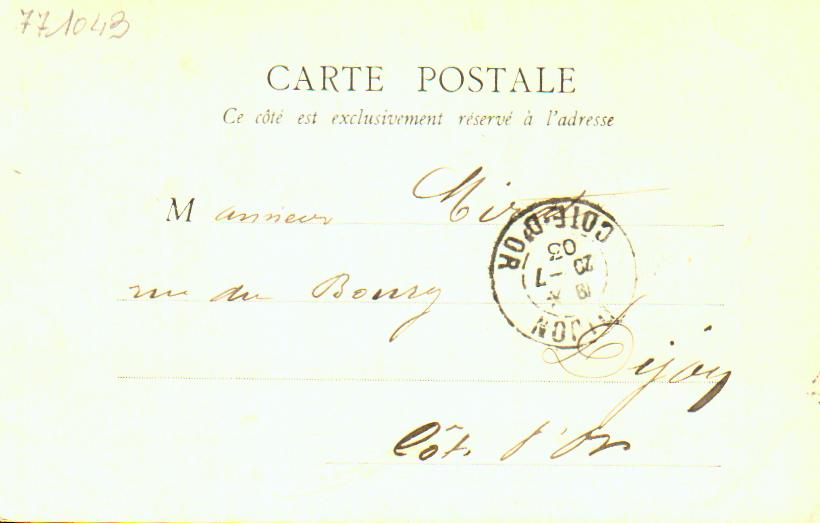 771043
CARTE POSTALE
Ce côté est exclusivement réservé à l'adresse
Monsieur
rue du Bourg
Dijon
Côte d'Or
DIJON
19
23 - 7
03
COTE-D'OR